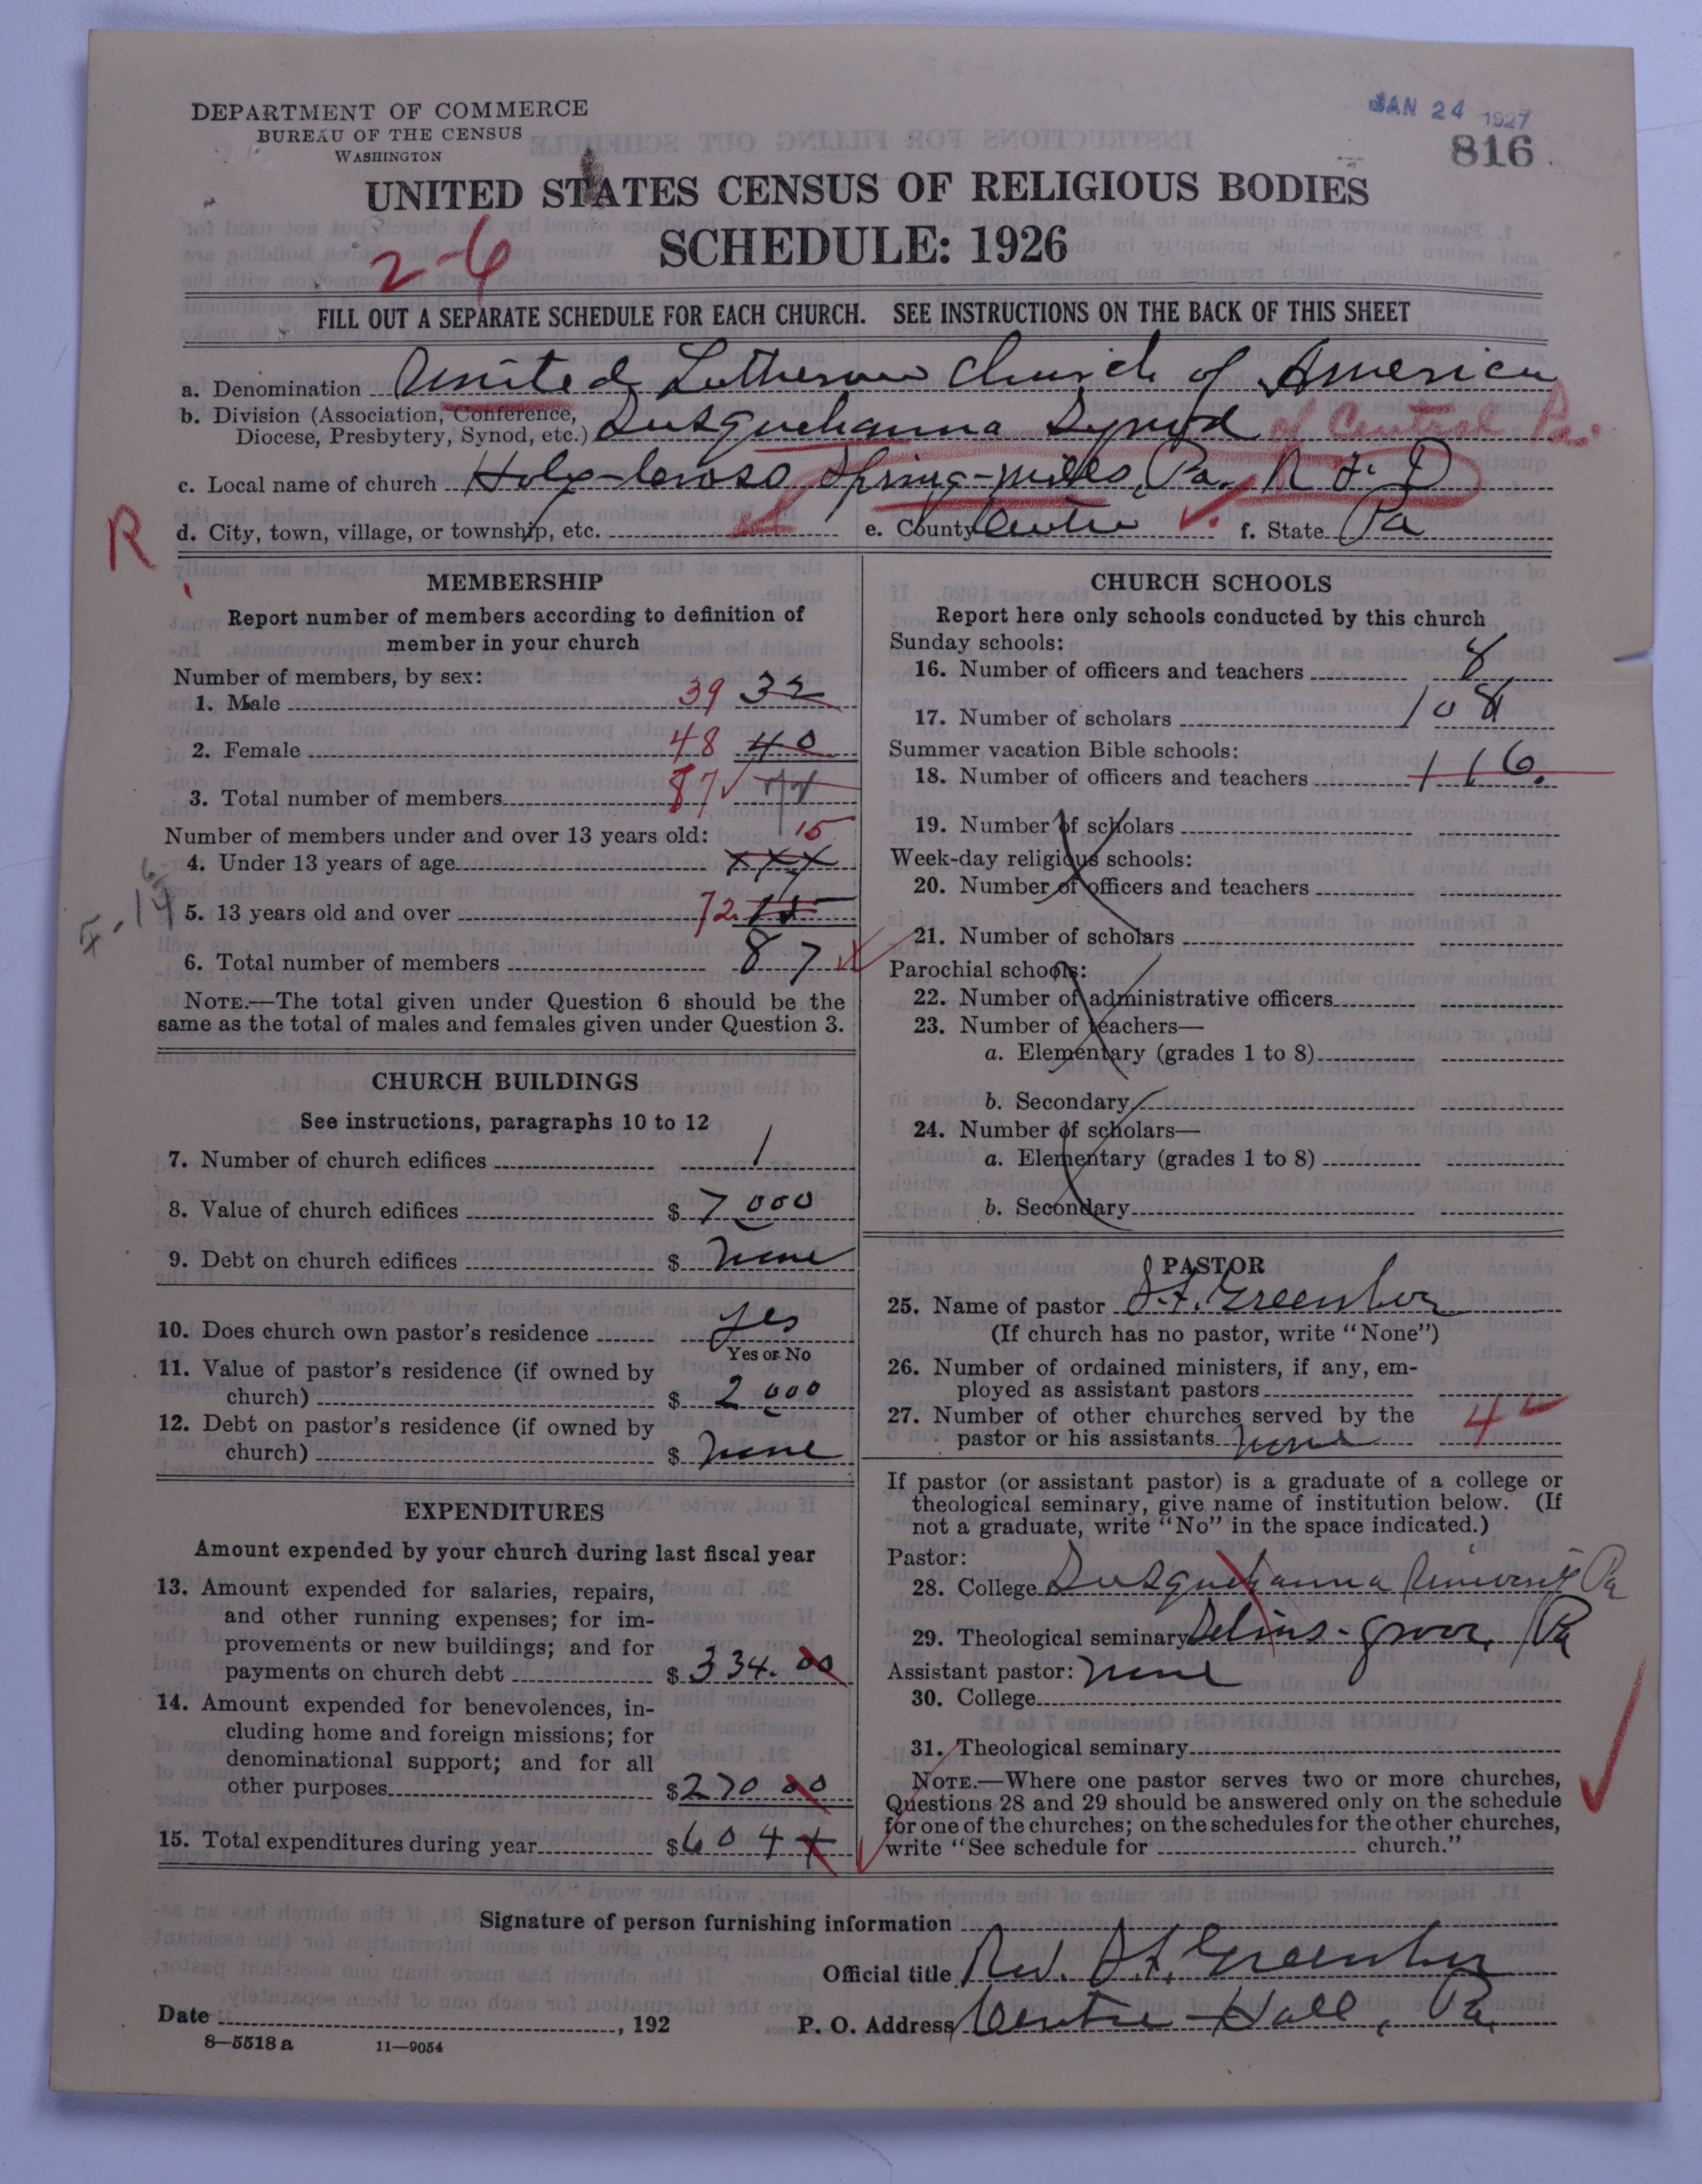 DEPARTMENT OF COMMERCE
BUREAU OF THE CENSUS
WASHINGTON
JAN 24 1927
816
UNITED STATES CENSUS OF RELIGIOUS BODIES
SCHEDULE: 1926
2-6
FILL OUT A SEPARATE SCHEDULE FOR EACH CHURCH. SEE INSTRUCTIONS ON THE BACK OF THIS SHEET
a. Denomination United Lutheran Church of America
b. Division (Association, Conference,
Diocese, Presbytery, Synod, etc.) Susquehanna Synod of Central Pa.
c. Local name of church Holy-Cross Spring-Mills, Pa. R F D
R
d. City, town, village, or township, etc. e. County Centre f. State Pa
MEMBERSHIP
Report number of members according to definition of
member in your church
Number of members, by sex:
1. Male 39 32
2. Female 48 40
3. Total number of members 87
Number of members under and over 13 years old: 15
4. Under 13 years of age xxx
5. 13 years old and over 72 15
6. Total number of members 87
NOTE.—The total given under Question 6 should be the
same as the total of males and females given under Question 3.
CHURCH BUILDINGS
See instructions, paragraphs 10 to 12
7. Number of church edifices 1
8. Value of church edifices $ 7000
9. Debt on church edifices $ None
10. Does church own pastor's residence yes
Yes or No
11. Value of pastor's residence (if owned by
church) $ 2000
12. Debt on pastor's residence (if owned by
church) $ None
EXPENDITURES
Amount expended by your church during last fiscal year
13. Amount expended for salaries, repairs,
and other running expenses; for im-
provements or new buildings; and for
payments on church debt $ 334.00
14. Amount expended for benevolences, in-
cluding home and foreign missions; for
denominational support; and for all
other purposes $ 270 00
15. Total expenditures during year $ 604
CHURCH SCHOOLS
Report here only schools conducted by this church
Sunday schools:
16. Number of officers and teachers 8
17. Number of scholars 108
Summer vacation Bible schools:
18. Number of officers and teachers 116.
19. Number of scholars
Week-day religious schools:
20. Number of officers and teachers
21. Number of scholars
Parochial schools:
22. Number of administrative officers
23. Number of teachers—
a. Elementary (grades 1 to 8)
b. Secondary
24. Number of scholars—
a. Elementary (grades 1 to 8)
b. Secondary
PASTOR
25. Name of pastor S.F. Greenhoe
(If church has no pastor, write "None")
26. Number of ordained ministers, if any, em-
ployed as assistant pastors
27. Number of other churches served by the
pastor or his assistants none 4
If pastor (or assistant pastor) is a graduate of a college or
theological seminary, give name of institution below. (If
not a graduate, write "No" in the space indicated.)
Pastor:
28. College Susquehanna University Pa
29. Theological seminary Selins-grove, Pa
Assistant pastor: None
30. College
31. Theological seminary
NOTE.—Where one pastor serves two or more churches,
Questions 28 and 29 should be answered only on the schedule
for one of the churches; on the schedules for the other churches,
write "See schedule for church."
Signature of person furnishing information
Official title Rev. S.F. Greenhoe
Date , 192 P. O. Address Centre-Hall, Pa.
8—5518 a 11—9054